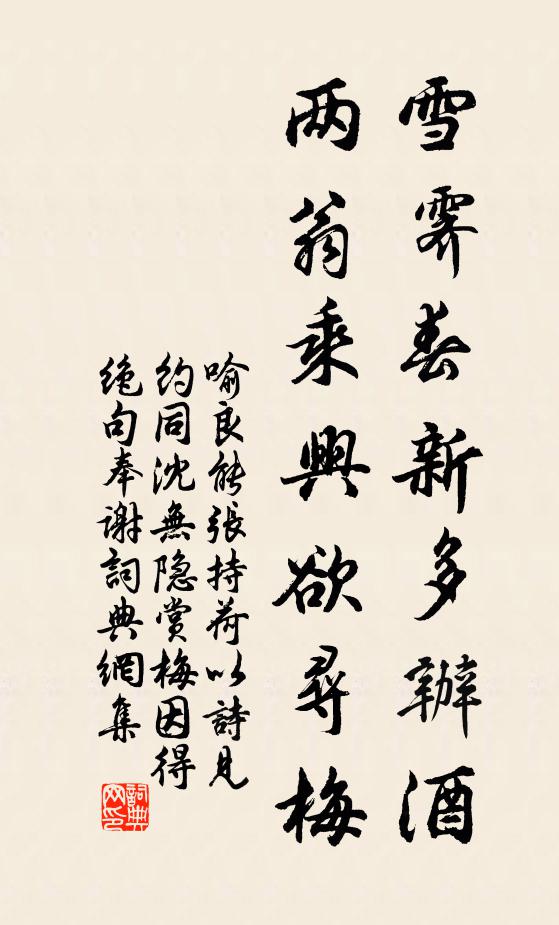 雪霽春新多辦酒
两翁乘興欲尋梅
喻良能張持荷以詩見
约同沈無隐赏梅因得
绝句奉谢詞典網集
詞典网印